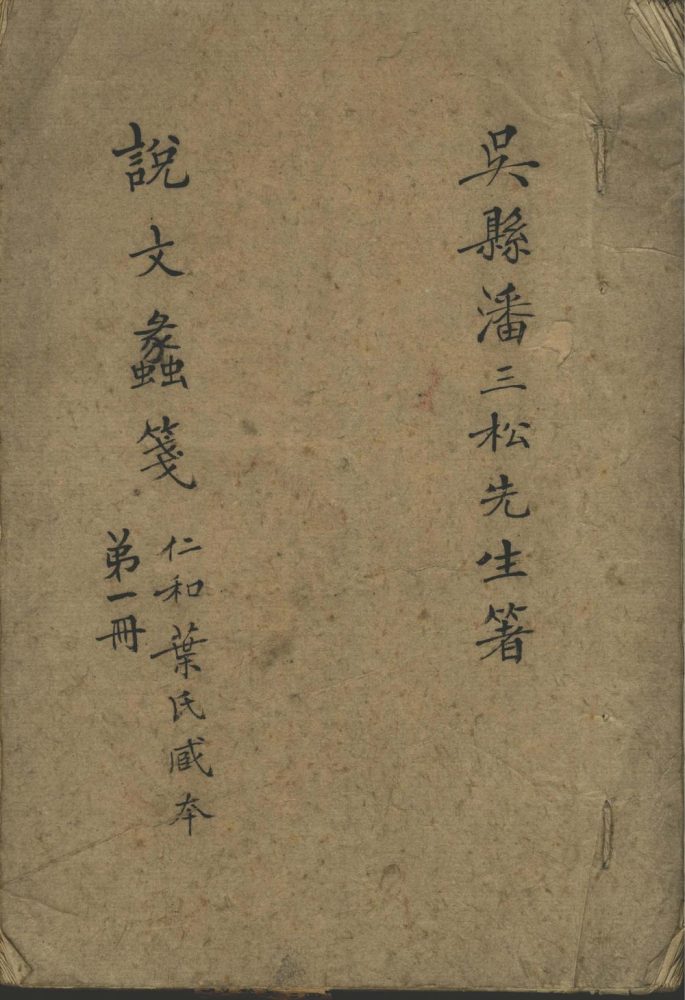 吳縣潘三松先生箸
說文蠡箋
仁和葉氏臧本
弟一冊